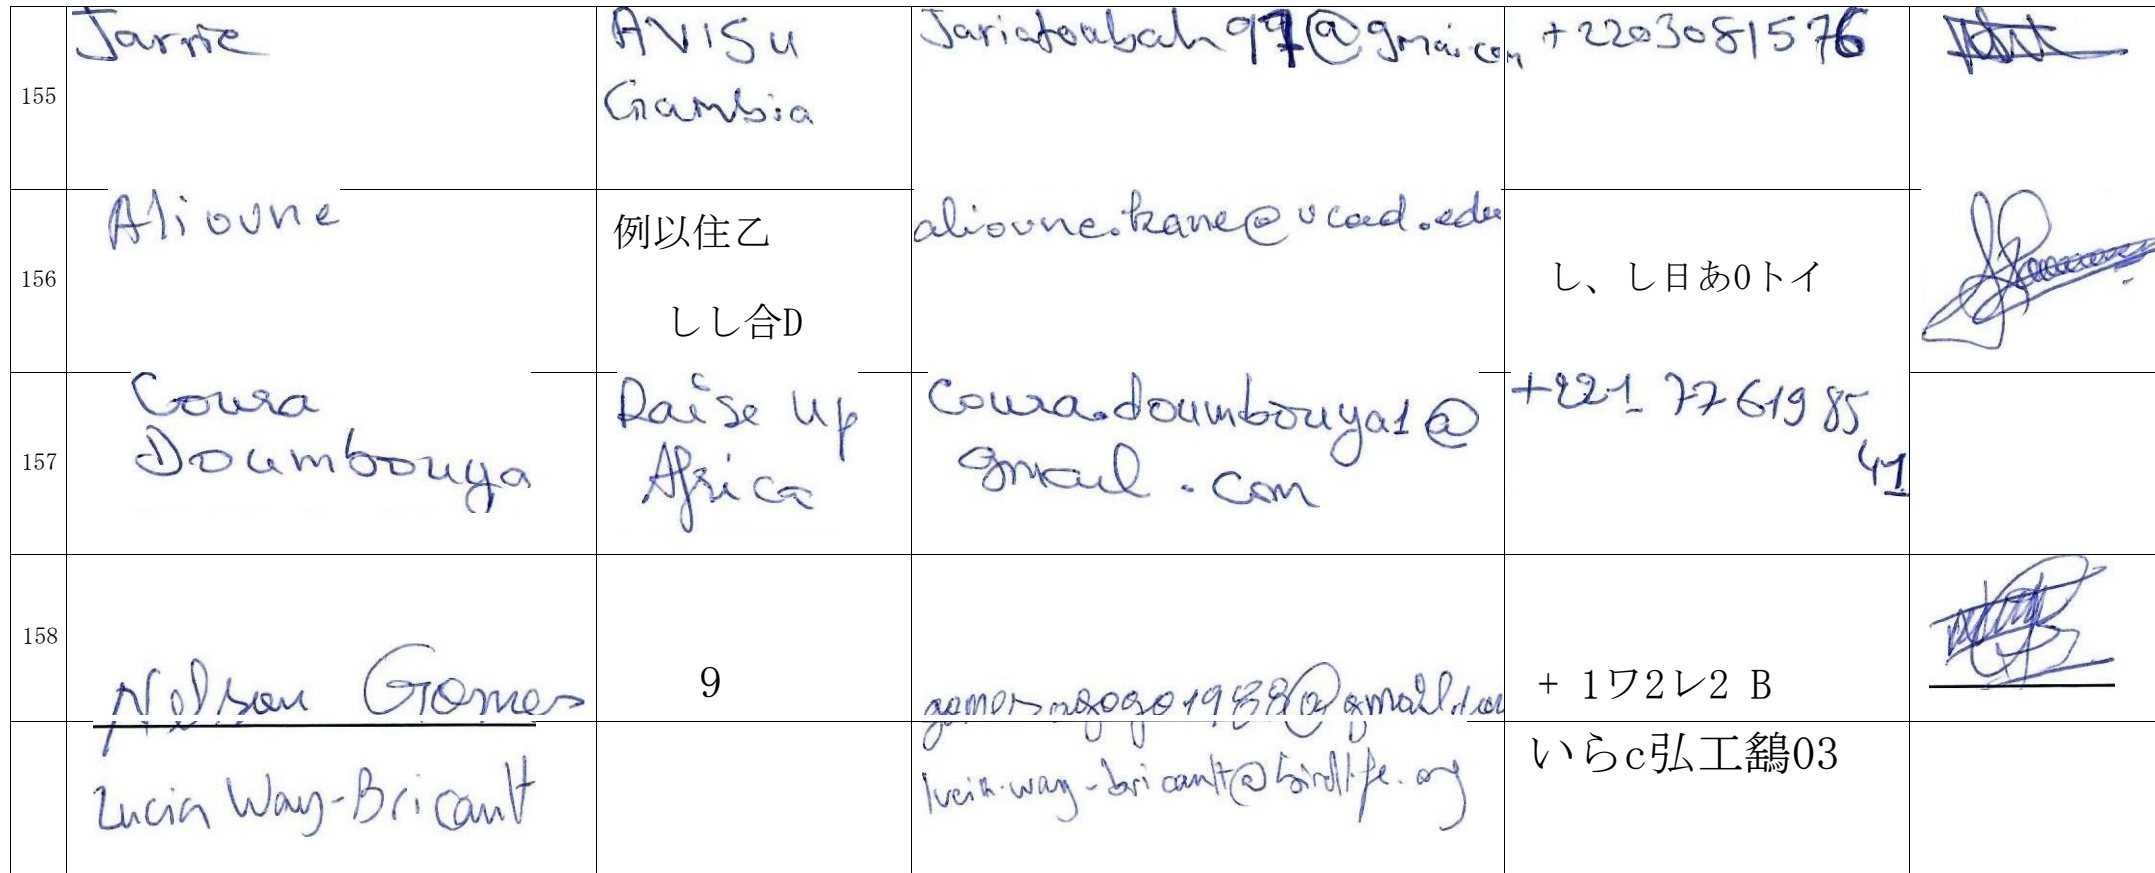 155
Jarrie
AVISU
Gambia
Jariatoubah 99@gmai.com
+2203081576
156
Alioune
例以住乙
しし合D
alioune.kane@ucad.edu
し、し日あ0トイ
157
Coura
Doumbouya
Raise Up
Africa
coura.doumbouya1@
gmail.com
+221 77 619 85
41
158
Nelson Gomes
9
+ 1ワ2レ2 B
Lucia Way-Bricault
lucia.way-bricault@birdlife.org
いらc弘工鷂03